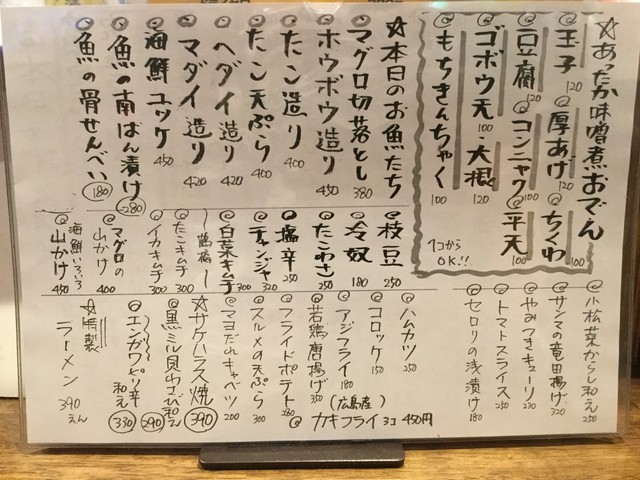 ☆あったか味噌煮おでん
◎玉子 120
◎厚あげ 120
◎ちくわ 100
◎豆腐 120
◎コンニャク 100
◎平天 100
ゴボウ天 100
・大根 120
◎もちきんちゃく 100
1コから OK!!
☆本日のお魚たち
◎マグロ切落とし 380
◎ホウボウ造り 450
◎たこ造り 400
◎たこ天ぷら 400
◎ヘダイ造り 420
◎マダイ造り 420
◎海鮮ユッケ 450
◎魚の南ばん漬け 280
◎魚の骨せんべい 180
◎枝豆 250
◎冷奴 180
◎たこわさ 250
◎塩辛 250
◎チャンジャ 320
◎白菜キムチ 300
鶴橋
◎たこキムチ 300
◎イカキムチ 300
◎マグロの山かけ 400
◎海鮮いろいろ山かけ 450
◎小松菜からし和え 250
◎サンマの竜田揚げ 320
◎やみつきキューリ 230
◎トマトスライス 250
◎セロリの浅漬け 180
◎ハムカツ 250
◎コロッケ 150
◎アジフライ 180
◎若鶏唐揚げ 350
◎フライドポテト 280
◎スルメの天ぷら 300
◎マヨだれキャベツ 200
☆サケハラス焼 390
◎黒ミル貝わさび和え 290
◎エンガワピリ辛和え 330
☆特製ラーメン 390えん
(広島産)
◎カキフライ 3コ 450円